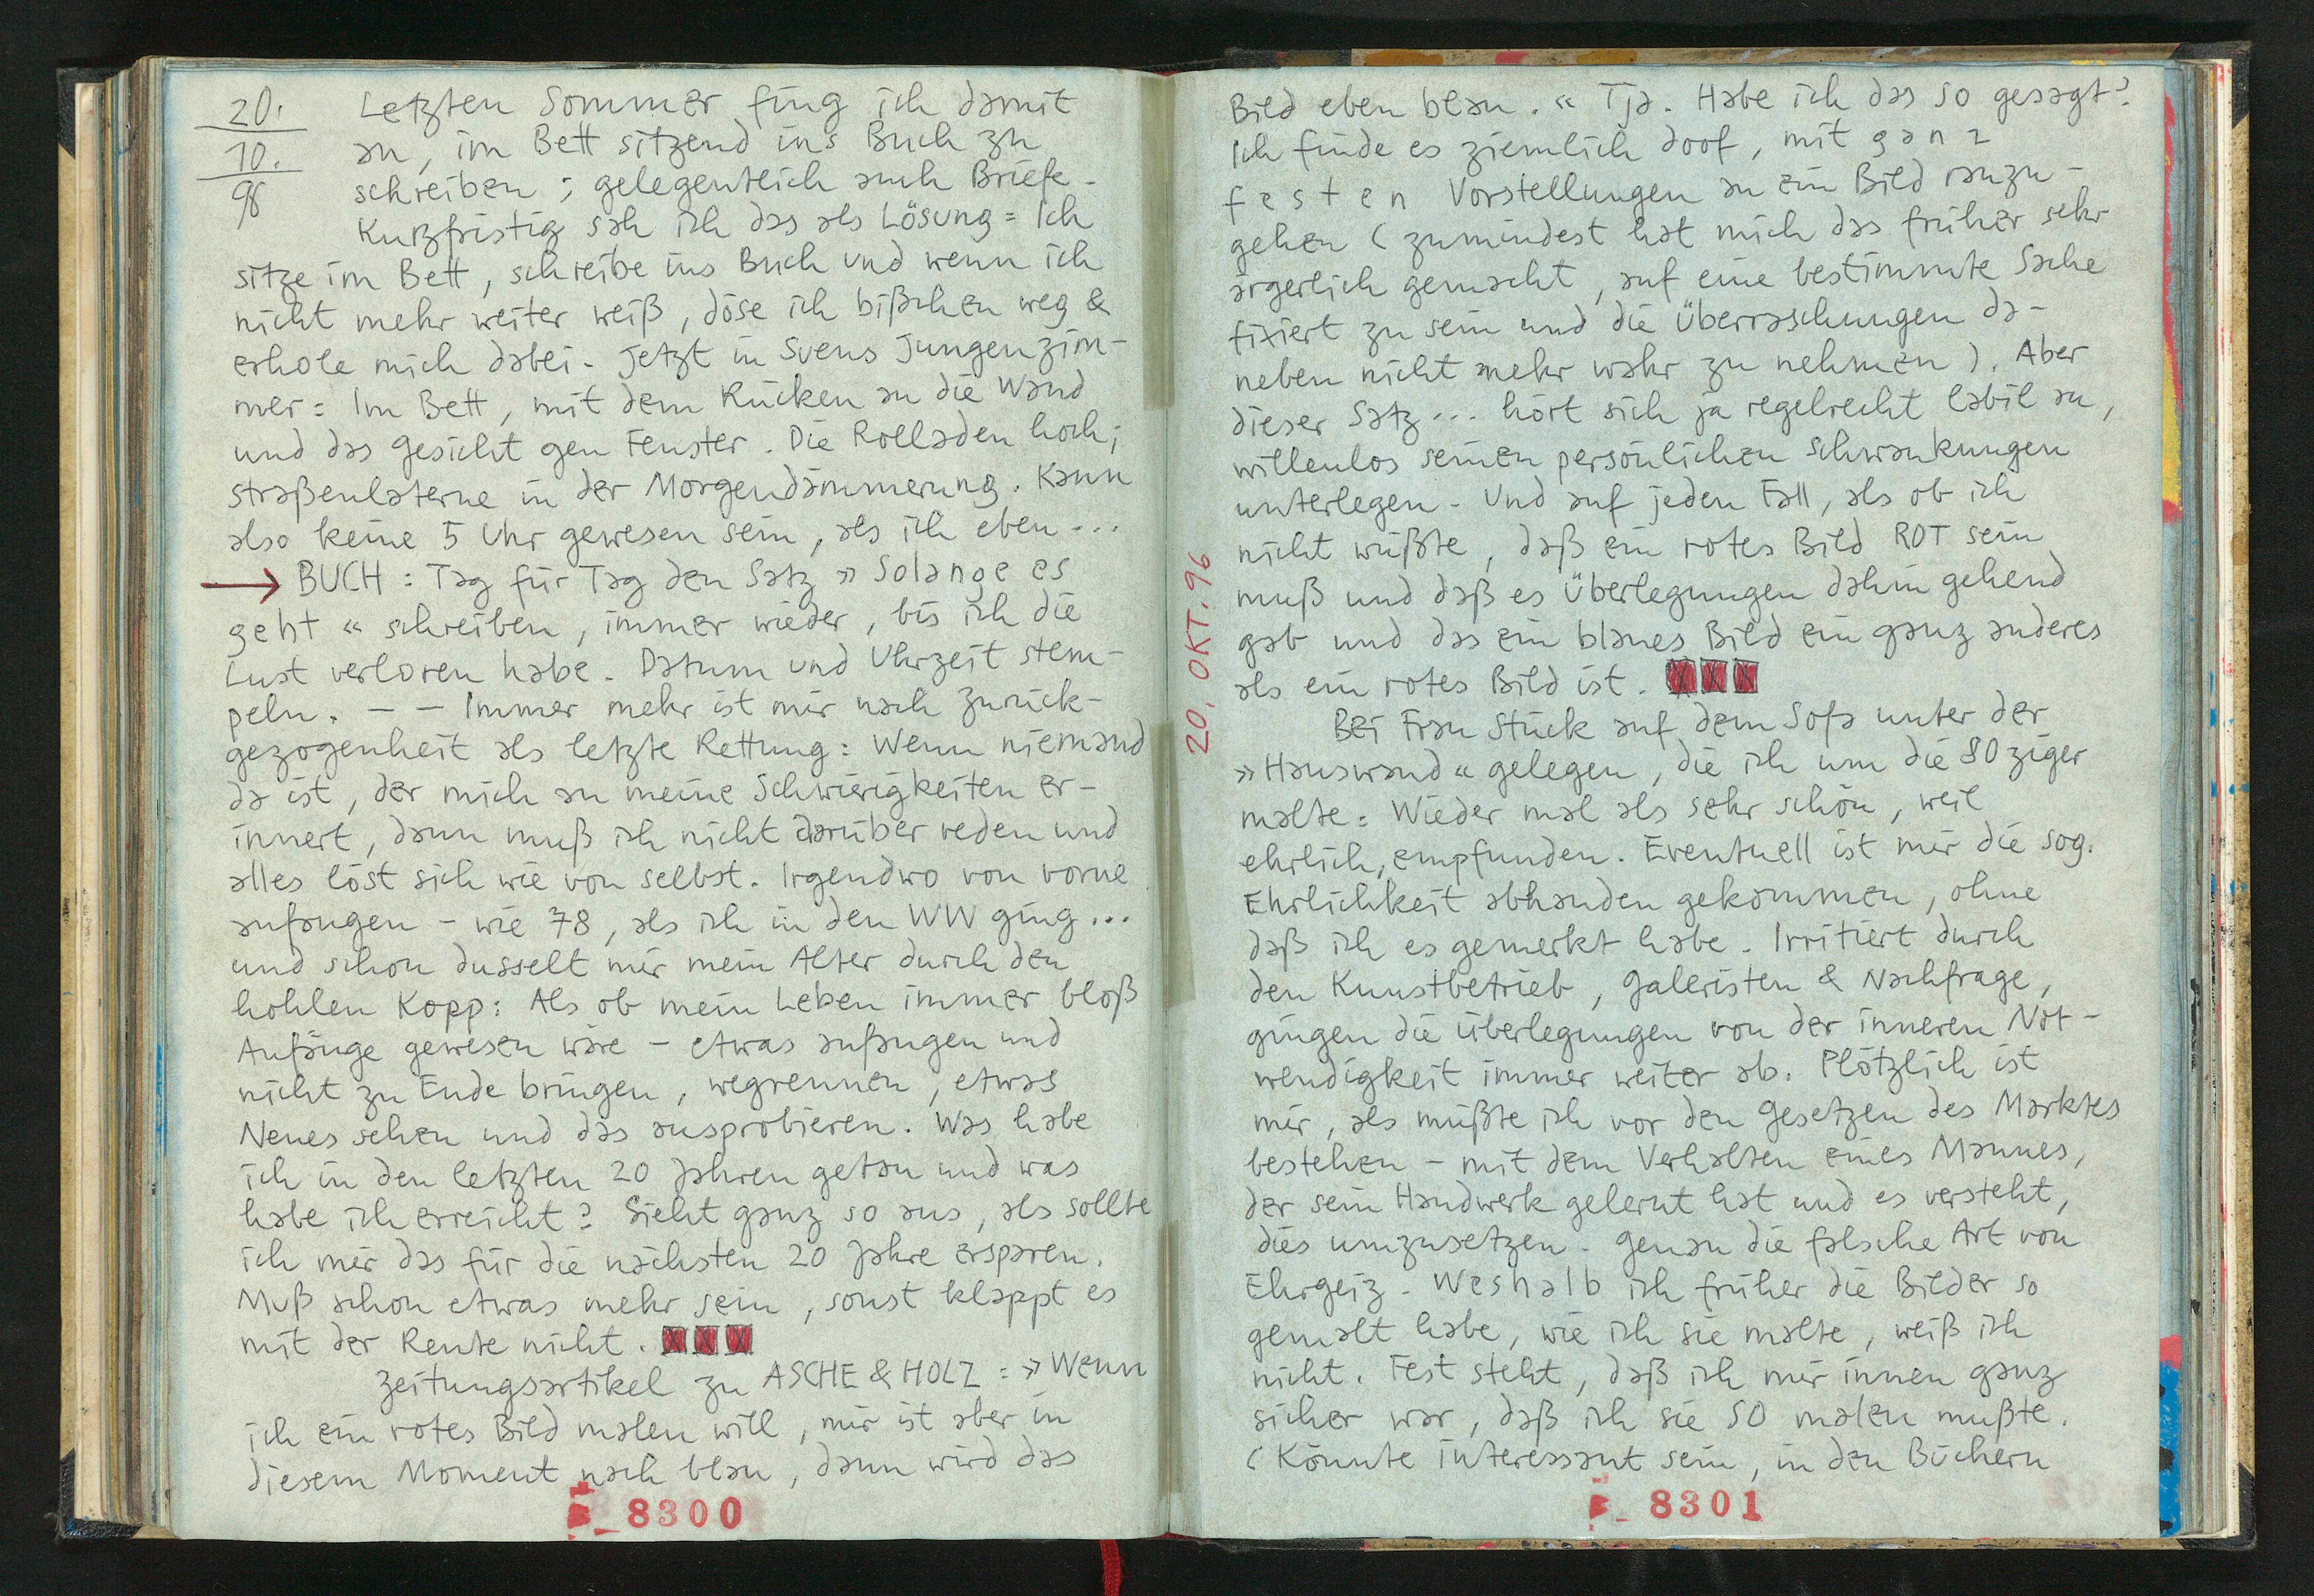 20.
10.
98
Letzten Sommer fing ich damit
an, im Bett sitzend ins Buch zu
schreiben; gelegentlich auch Briefe.
Kurzfristig sah ich das als Lösung: Ich
sitze im Bett, schreibe ins Buch und wenn ich
nicht mehr weiter weiß, döse ich bißchen weg &
erhole mich dabei. Jetzt in Svens Jungenzim-
mer: Im Bett, mit dem Rücken an die Wand
und das Gesicht gen Fenster. Die Rolladen hoch;
Straßenlaterne in der Morgendämmerung. Kann
also keine 5 Uhr gewesen sein, als ich eben...
→ BUCH: Tag für Tag den Satz »Solange es
geht« schreiben, immer wieder, bis ich die
Lust verloren habe. Datum und Uhrzeit stem-
peln. – – Immer mehr ist mir nach Zurück-
gezogenheit als letzte Rettung: Wenn niemand
da ist, der mich an meine Schwierigkeiten er-
innert, dann muß ich nicht darüber reden und
alles löst sich wie von selbst. Irgendwo von vorne
anfangen – wie 78, als ich in den WW ging...
und schon dusselt mir mein Alter durch den
hohlen Kopp: Als ob mein Leben immer bloß
Anfänge gewesen wäre – etwas anfangen und
nicht zu Ende bringen, wegrennen, etwas
Neues sehen und das ausprobieren. Was habe
ich in den letzten 20 Jahren getan und was
habe ich erreicht? Sieht ganz so aus, als sollte
ich mir das für die nächsten 20 Jahre ersparen.
Muß schon etwas mehr sein, sonst klappt es
mit der Rente nicht.
Zeitungsartikel zu ASCHE & HOLZ: »Wenn
ich ein rotes Bild malen will, mir ist aber in
diesem Moment nach blau, dann wird das
8300
20. OKT. 96
Bild eben blau.« Tja. Habe ich das so gesagt?
Ich finde es ziemlich doof, mit ganz
festen Vorstellungen an ein Bild ranzu-
gehen (zumindest hat mich das früher sehr
ärgerlich gemacht, auf eine bestimmte Sache
fixiert zu sein und die Überraschungen da-
neben nicht mehr wahr zu nehmen). Aber
dieser Satz... hört sich ja regelrecht labil an,
willenlos seinen persönlichen Schwankungen
unterlegen. Und auf jeden Fall, als ob ich
nicht wüßte, daß ein rotes Bild ROT sein
muß und daß es Überlegungen dahin gehend
gab und das ein blaues Bild ein ganz anderes
als ein rotes Bild ist.
Bei Frau Stück auf dem Sofa unter der
»Hauswand« gelegen, die ich um die 80ziger
malte: Wieder mal als sehr schön, weil
ehrlich, empfunden. Eventuell ist mir die sog.
Ehrlichkeit abhanden gekommen, ohne
daß ich es gemerkt habe. Irritiert durch
den Kunstbetrieb, Galeristen & Nachfrage,
gingen die Überlegungen von der inneren Not-
wendigkeit immer weiter ab. Plötzlich ist
mir, als müßte ich vor den Gesetzen des Marktes
bestehen – mit dem Verhalten eines Mannes,
der sein Handwerk gelernt hat und es versteht,
dies umzusetzen. Genau die falsche Art von
Ehrgeiz. Weshalb ich früher die Bilder so
gemalt habe, wie ich sie malte, weiß ich
nicht. Fest steht, daß ich mir innen ganz
sicher war, daß ich sie SO malen mußte.
(Könnte interessant sein, in den Büchern
8301